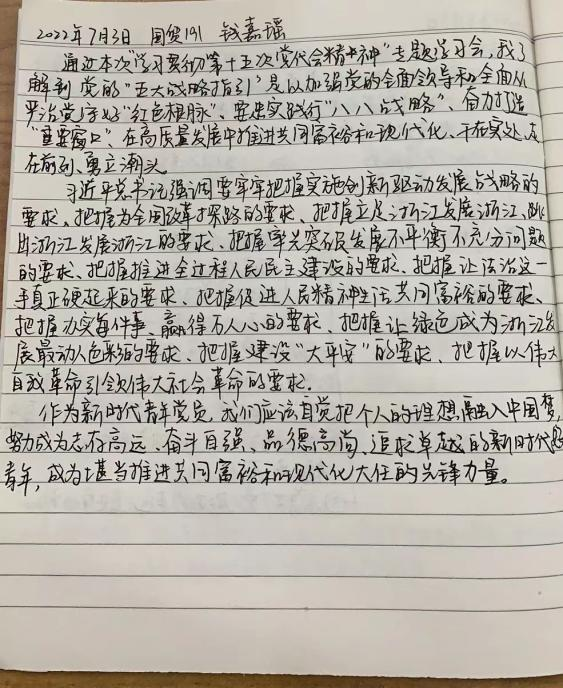 2022年7月3日 国贸191 钱嘉瑶
通过本次"学习贯彻第十五次党代会精神"专题学习会，我了
解到党的"五大战略指引"是以加强党的全面领导和全面从
严治党守好"红色根脉"、要忠实践行"八八战略"、奋力打造
"重要窗口"、在高质量发展中推进共同富裕和现代化、干在实处、走
在前列、勇立潮头
习近平总书记强调要牢牢把握实施创新驱动发展战略的
要求、把握为全国改革探路的要求、把握立足浙江发展浙江、跳
出浙江发展浙江的要求、把握率先突破发展不平衡不充分问题
的要求、把握推进全过程人民民主建设的要求、把握让法治这一
手真正硬起来的要求、把握促进人民精神生活共同富裕的要求、
把握办实每件事、赢得万人心的要求、把握让绿色成为浙江发
展最动人色彩的要求、把握建设"大平安"的要求、把握以伟大
自我革命引领伟大社会革命的要求.
作为新时代青年党员，我们应该自觉把个人的理想融入中国梦，
努力成为志存高远、奋斗自强、品德高尚、追求卓越的新时代
青年，成为堪当推进共同富裕和现代化大任的先锋力量。